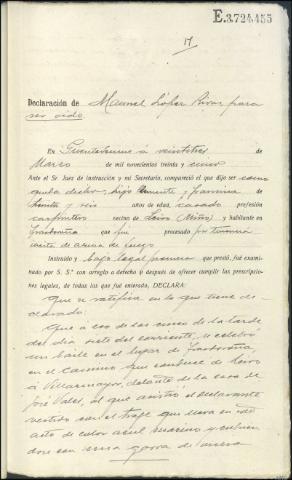 E.3724455
17
Declaración de Manuel López Rivas para
ser oido
En Puentedeume a veintitres de
Marzo de mil novecientos treinta y cinco
Ante el Sr Juez de instrucción y mi Secretaria, compareció el que dijo ser como
queda dicho, hijo de y
treinta y seis años de edad, casado profesión
carpintero vecino de Leiro (Miño) y habitante en
que fué procesado por tenencia
ilícita de arma de fuego
Instruido y bajo legal promesa que prestó, fué examinado
por S. S.ª con arreglo a derecho y después de ofrecer cumplir las prescripciones
legales, de todos las que fué enterado, DECLARA:
Que se ratifica en lo que tiene de-
clarado.
Que a eso de las cinco de la tarde
del día siete del corriente, se celebró
un baile en el lugar de
en el camino que conduce de Leiro
a Villarmayor, delante de la casa de
José Vales, al que asistió el declarante
vestido con el traje que lleva en este
acto de color azul marino y cubrien-
dose con una gorra de